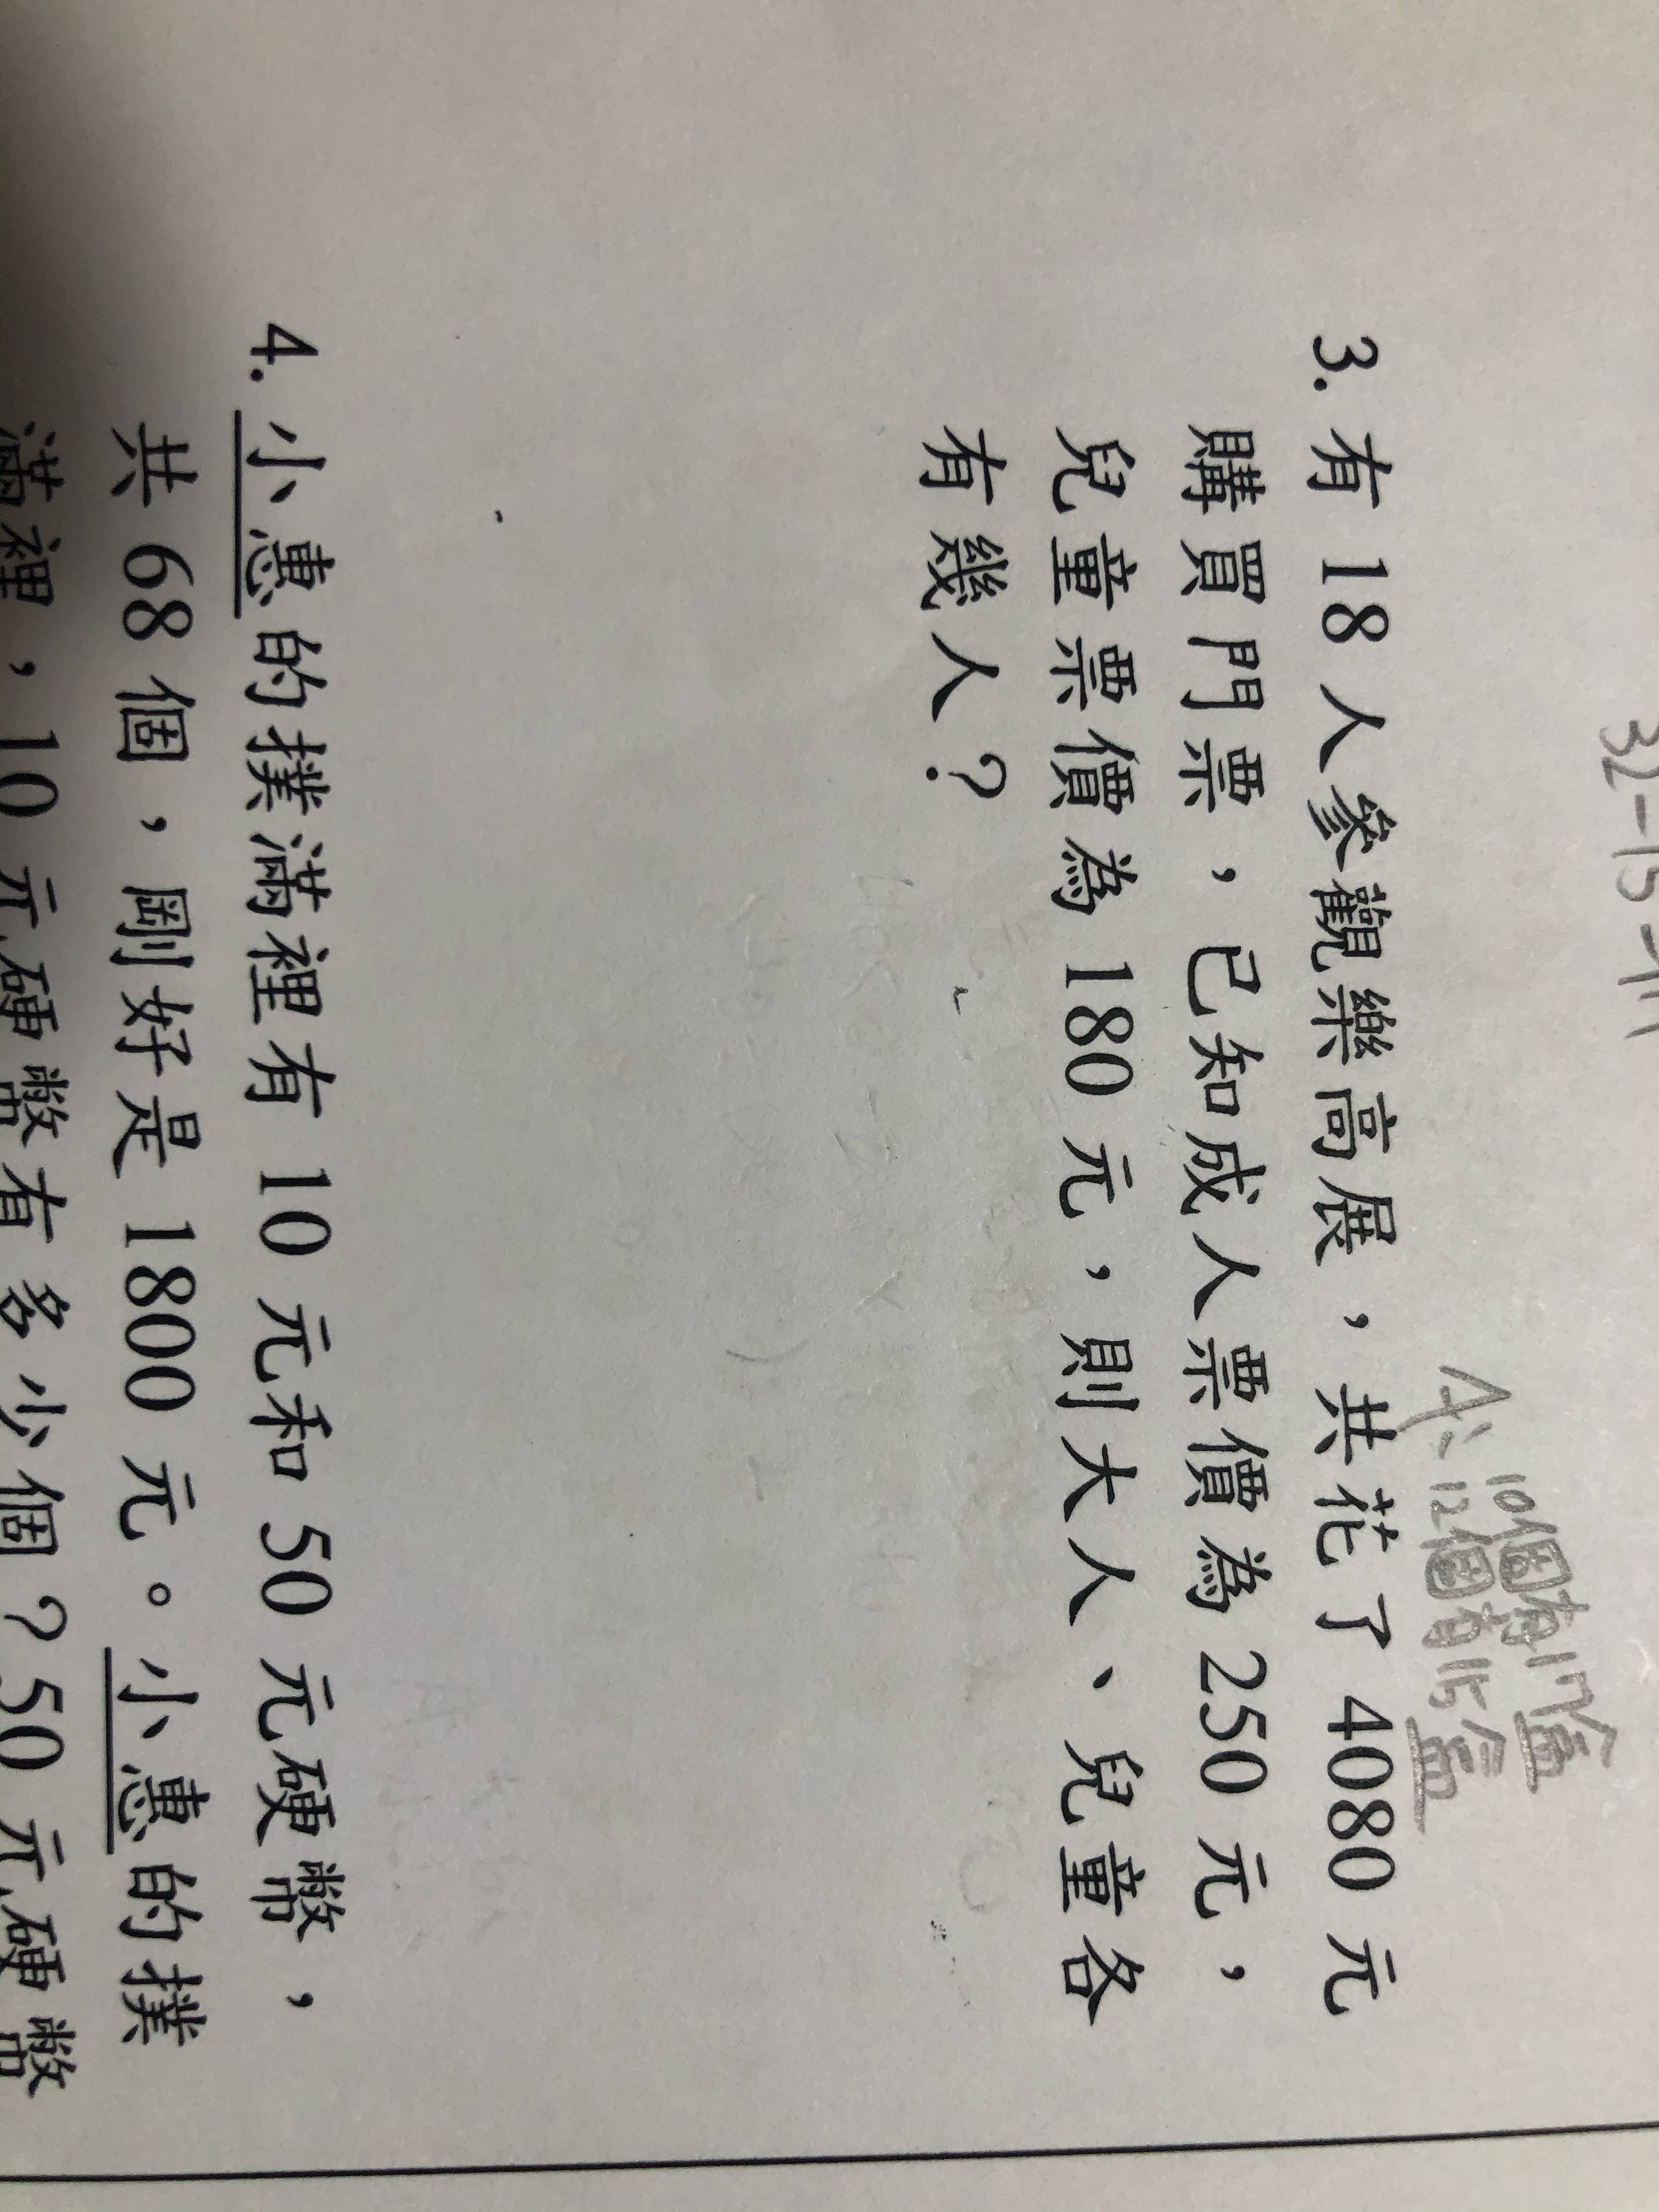 32-15=17
A:10個有17盒
12個有15盒
3. 有 18 人參觀樂高展，共花了 4080 元
購買門票，已知成人票價為 250 元，
兒童票價為 180 元，則大人、兒童各
有幾人？
4. 小惠的撲滿裡有 10 元和 50 元硬幣，
共 68 個，剛好是 1800 元。小惠的撲
滿裡，10 元硬幣有多少個？50 元硬幣